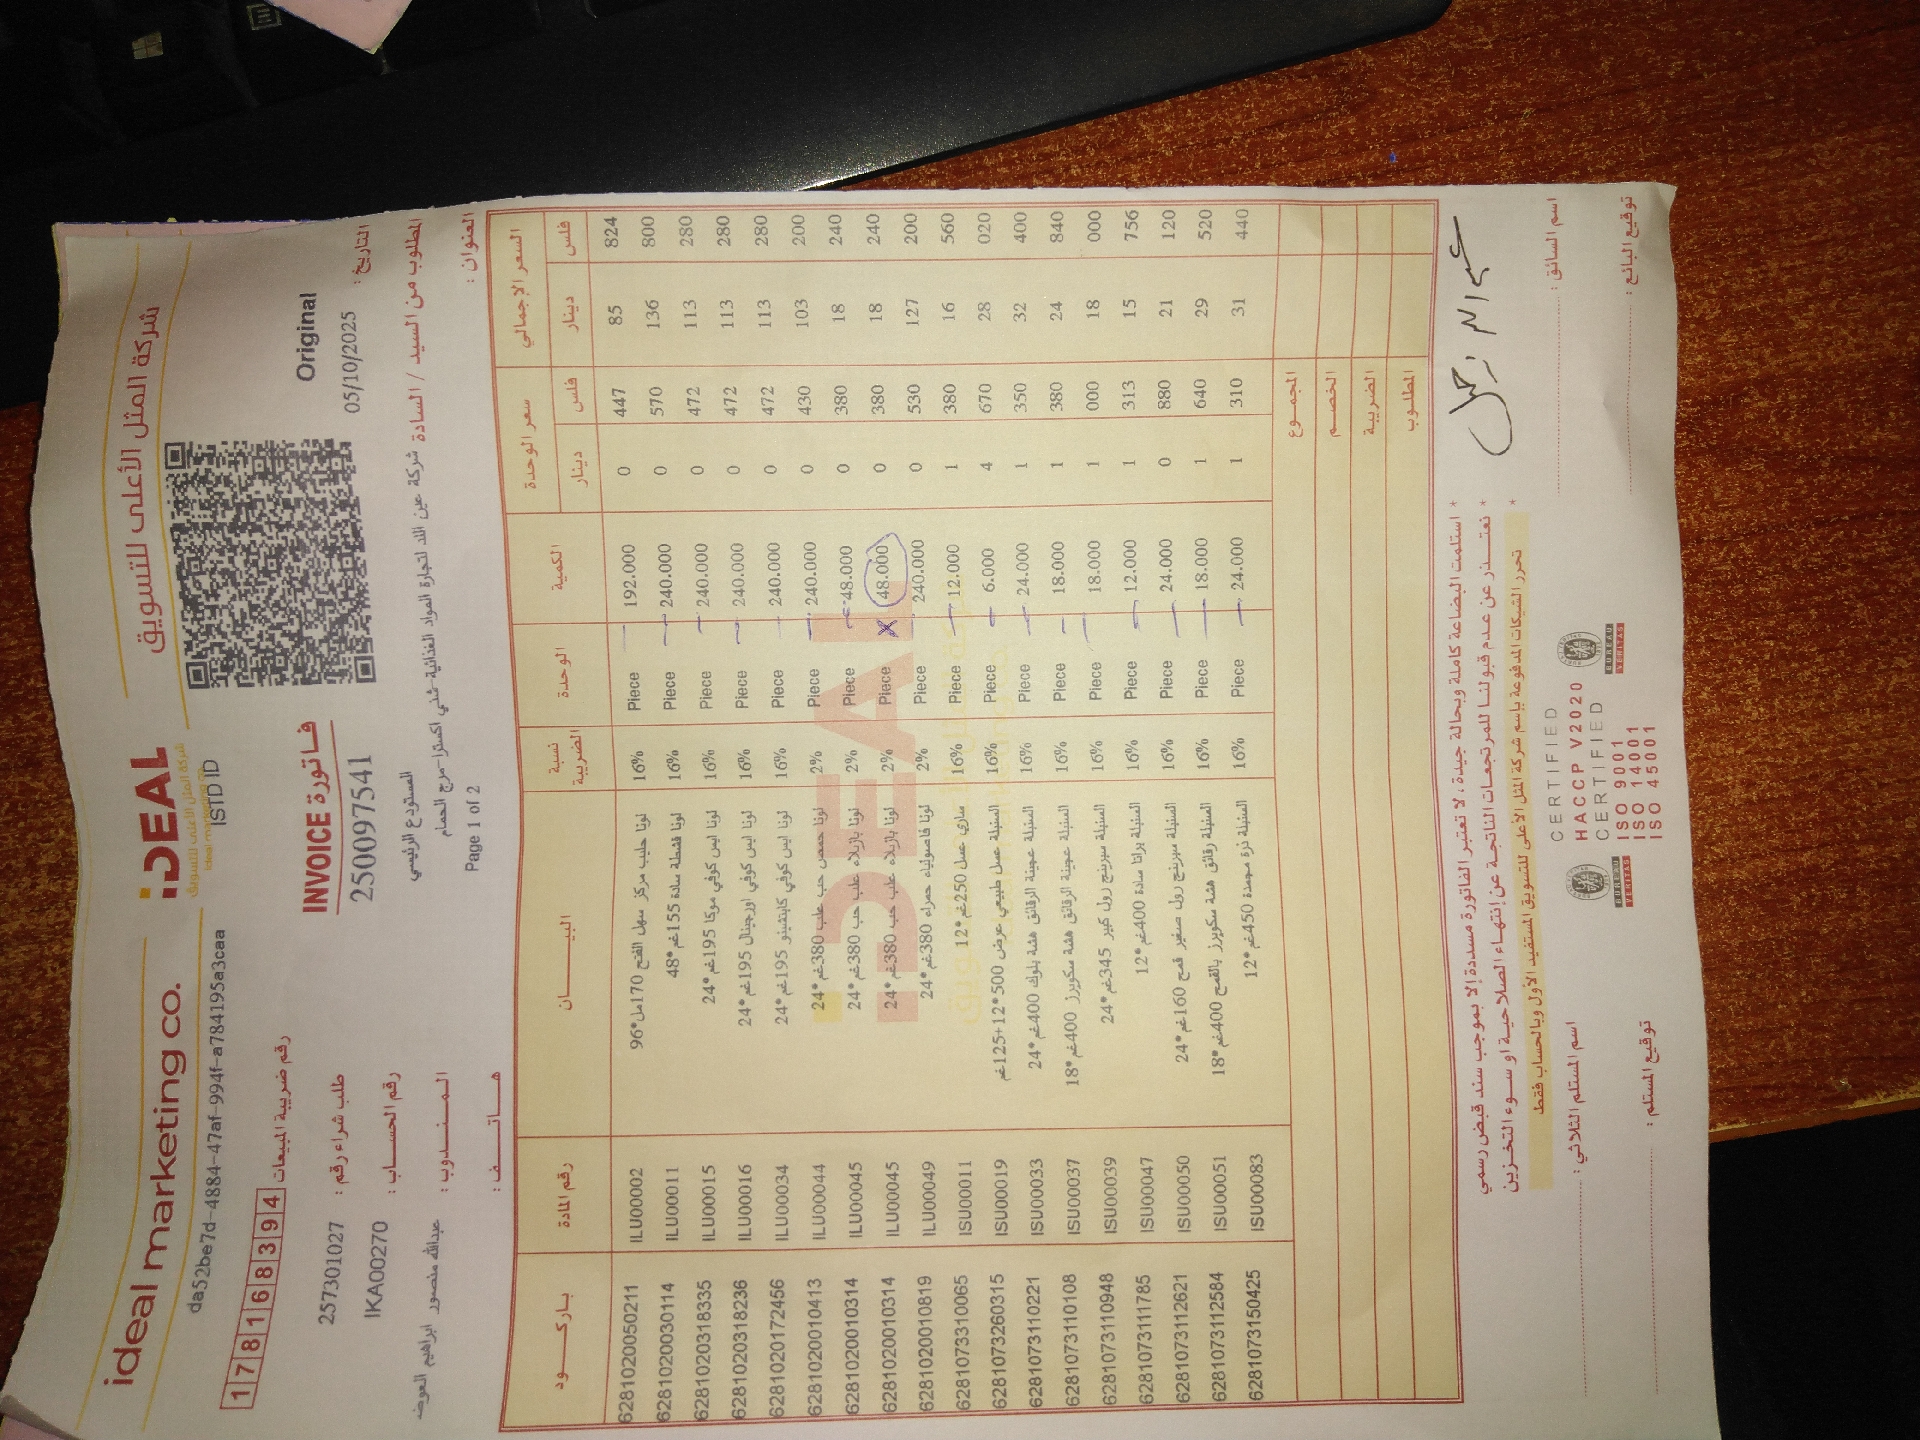 ideal marketing co.
iDEAL
شركة المثل الأعلى للتسويق
ideal marketing co.
شركة المثل الأعلى للتسويق
da52be7d-4884-47af-994f-a784195a3caa
ISTD ID
رقم ضريبة المبيعات 178168394
INVOICE فاتورة
2500097541
Original
طلب شراء رقم : 2573010​27
التاريخ : 05/10/2025
رقم الحساب : IKA00270
المستودع الرئيسي
المطلوب من السيد / السادة شركة عين اللد لتجارة المواد الغذائية-شلني اكسترا-مرج الحمام
المندوب : عبدالله منصور ابراهيم العوضه
Page 1 of 2
العنوان :
هاتف :
باركود رقم المادة البيان نسبة الضريبة الوحدة الكمية سعر الوحدة السعر الإجمالي
دينار فلس دينار فلس
6281020050211 ILU00002 لونا حليب مركز سهل الفتح 170مل*96 16% Piece 192.000 0 447 85 824
6281020030114 ILU00011 لونا قشطة سادة 155غم*48 16% Piece 240.000 0 570 136 800
6281020318335 ILU00015 لونا ايس كوفي موكا 195غم*24 16% Piece 240.000 0 472 113 280
6281020318236 ILU00016 لونا ايس كوفي اورجينال 195غم*24 16% Piece 240.000 0 472 113 280
6281020172456 ILU00034 لونا ايس كوفي كابتشينو 195غم*24 16% Piece 240.000 0 472 113 280
6281020010413 ILU00044 لونا حمص حب علب 380غم*24 2% Piece 240.000 0 430 103 200
6281020010314 ILU00045 لونا بازيلاء علب حب 380غم*24 2% Piece 48.000 0 380 18 240
6281020010314 ILU00045 لونا بازيلاء علب حب 380غم*24 2% Piece x 48.000 0 380 18 240
6281020010819 ILU00049 لونا فاصولياء حمراء 380غم*24 2% Piece 240.000 0 530 127 200
6281073310065 ISU00011 ساري عسل 250غم*12 16% Piece 12.000 1 380 16 560
6281073260315 ISU00019 السنبلة عسل طبيعي عرض 500*12+125غم 16% Piece 6.000 4 670 28 020
6281073110221 ISU00033 السنبلة عجينة الرقائق هشة بلوك 400غم*24 16% Piece 24.000 1 350 32 400
6281073110108 ISU00037 السنبلة عجينة الرقائق هشة سكويرز 400غم*18 16% Piece 18.000 1 380 24 840
6281073110948 ISU00039 السنبلة سبرينج رول كبير 345غم*24 16% Piece 18.000 1 000 18 000
6281073111785 ISU00047 السنبلة براتا سادة 400غم*12 16% Piece 12.000 1 313 15 756
6281073112621 ISU00050 السنبلة سبرينج رول صغير قمح 160غم*24 16% Piece 24.000 0 880 21 120
6281073112584 ISU00051 السنبلة رقائق هشة سكويرز بالقمح 400غم*18 16% Piece 18.000 1 640 29 520
6281073150425 ISU00083 السنبلة ذرة مجمدة 450غم*12 16% Piece 24.000 1 310 31 440
المجموع
الخصم
الضريبة
المطلوب
* استلمت البضاعة كاملة وبحالة جيدة، لا تعتبر الفاتورة مسددة إلا بموجب سند قبض رسمي
* نعتذر عن عدم قبولنا للمرتجعات الناتجة عن إنتهاء الصلاحية او سوء التخزين
* تحرر الشيكات المدفوعة بإسم شركة المثل الأعلى للتسويق المستفيد الأول وبالحساب فقط
اسم المستلم الثلاثي :
اسم السائق :
توقيع المستلم :
توقيع البائع :
CERTIFIED
HACCP V2020
CERTIFIED
ISO 9001
ISO 14001
ISO 45001
BUREAU VERITAS
BUREAU VERITAS